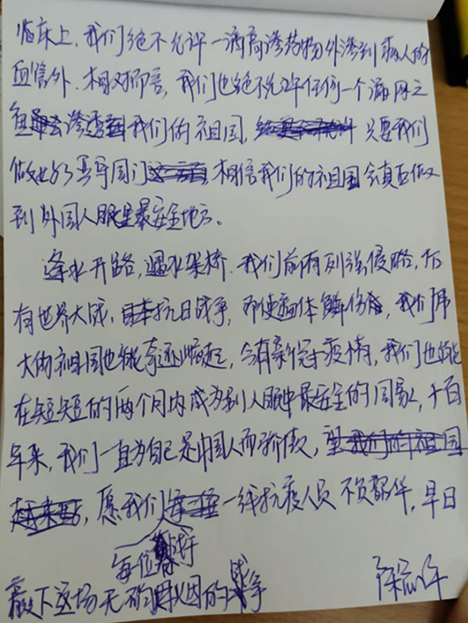 临床上，我们绝不允许一滴高渗药物外渗到病人的
血管外，相对而言，我们也绝不允许任何一个漏网之
鱼渗透到我们的祖国，只要我们
做 相信我们的祖国会真正做
到外国人眼里最安全地方。
逢水开路，遇水架桥，我们前有列强侵略，后
有世界大战，抗日战争，即使遍体鳞伤，我们伟
大的祖国也能奇迹崛起，今有新冠疫情，我们也能
在短短的两个月内成为别人眼中最安全的国家，千百
年来，我们一直为自己是中国人而骄傲，
愿我们 一线抗疫人员不负韶华，早日
每位
赢下这场无硝烟的战争